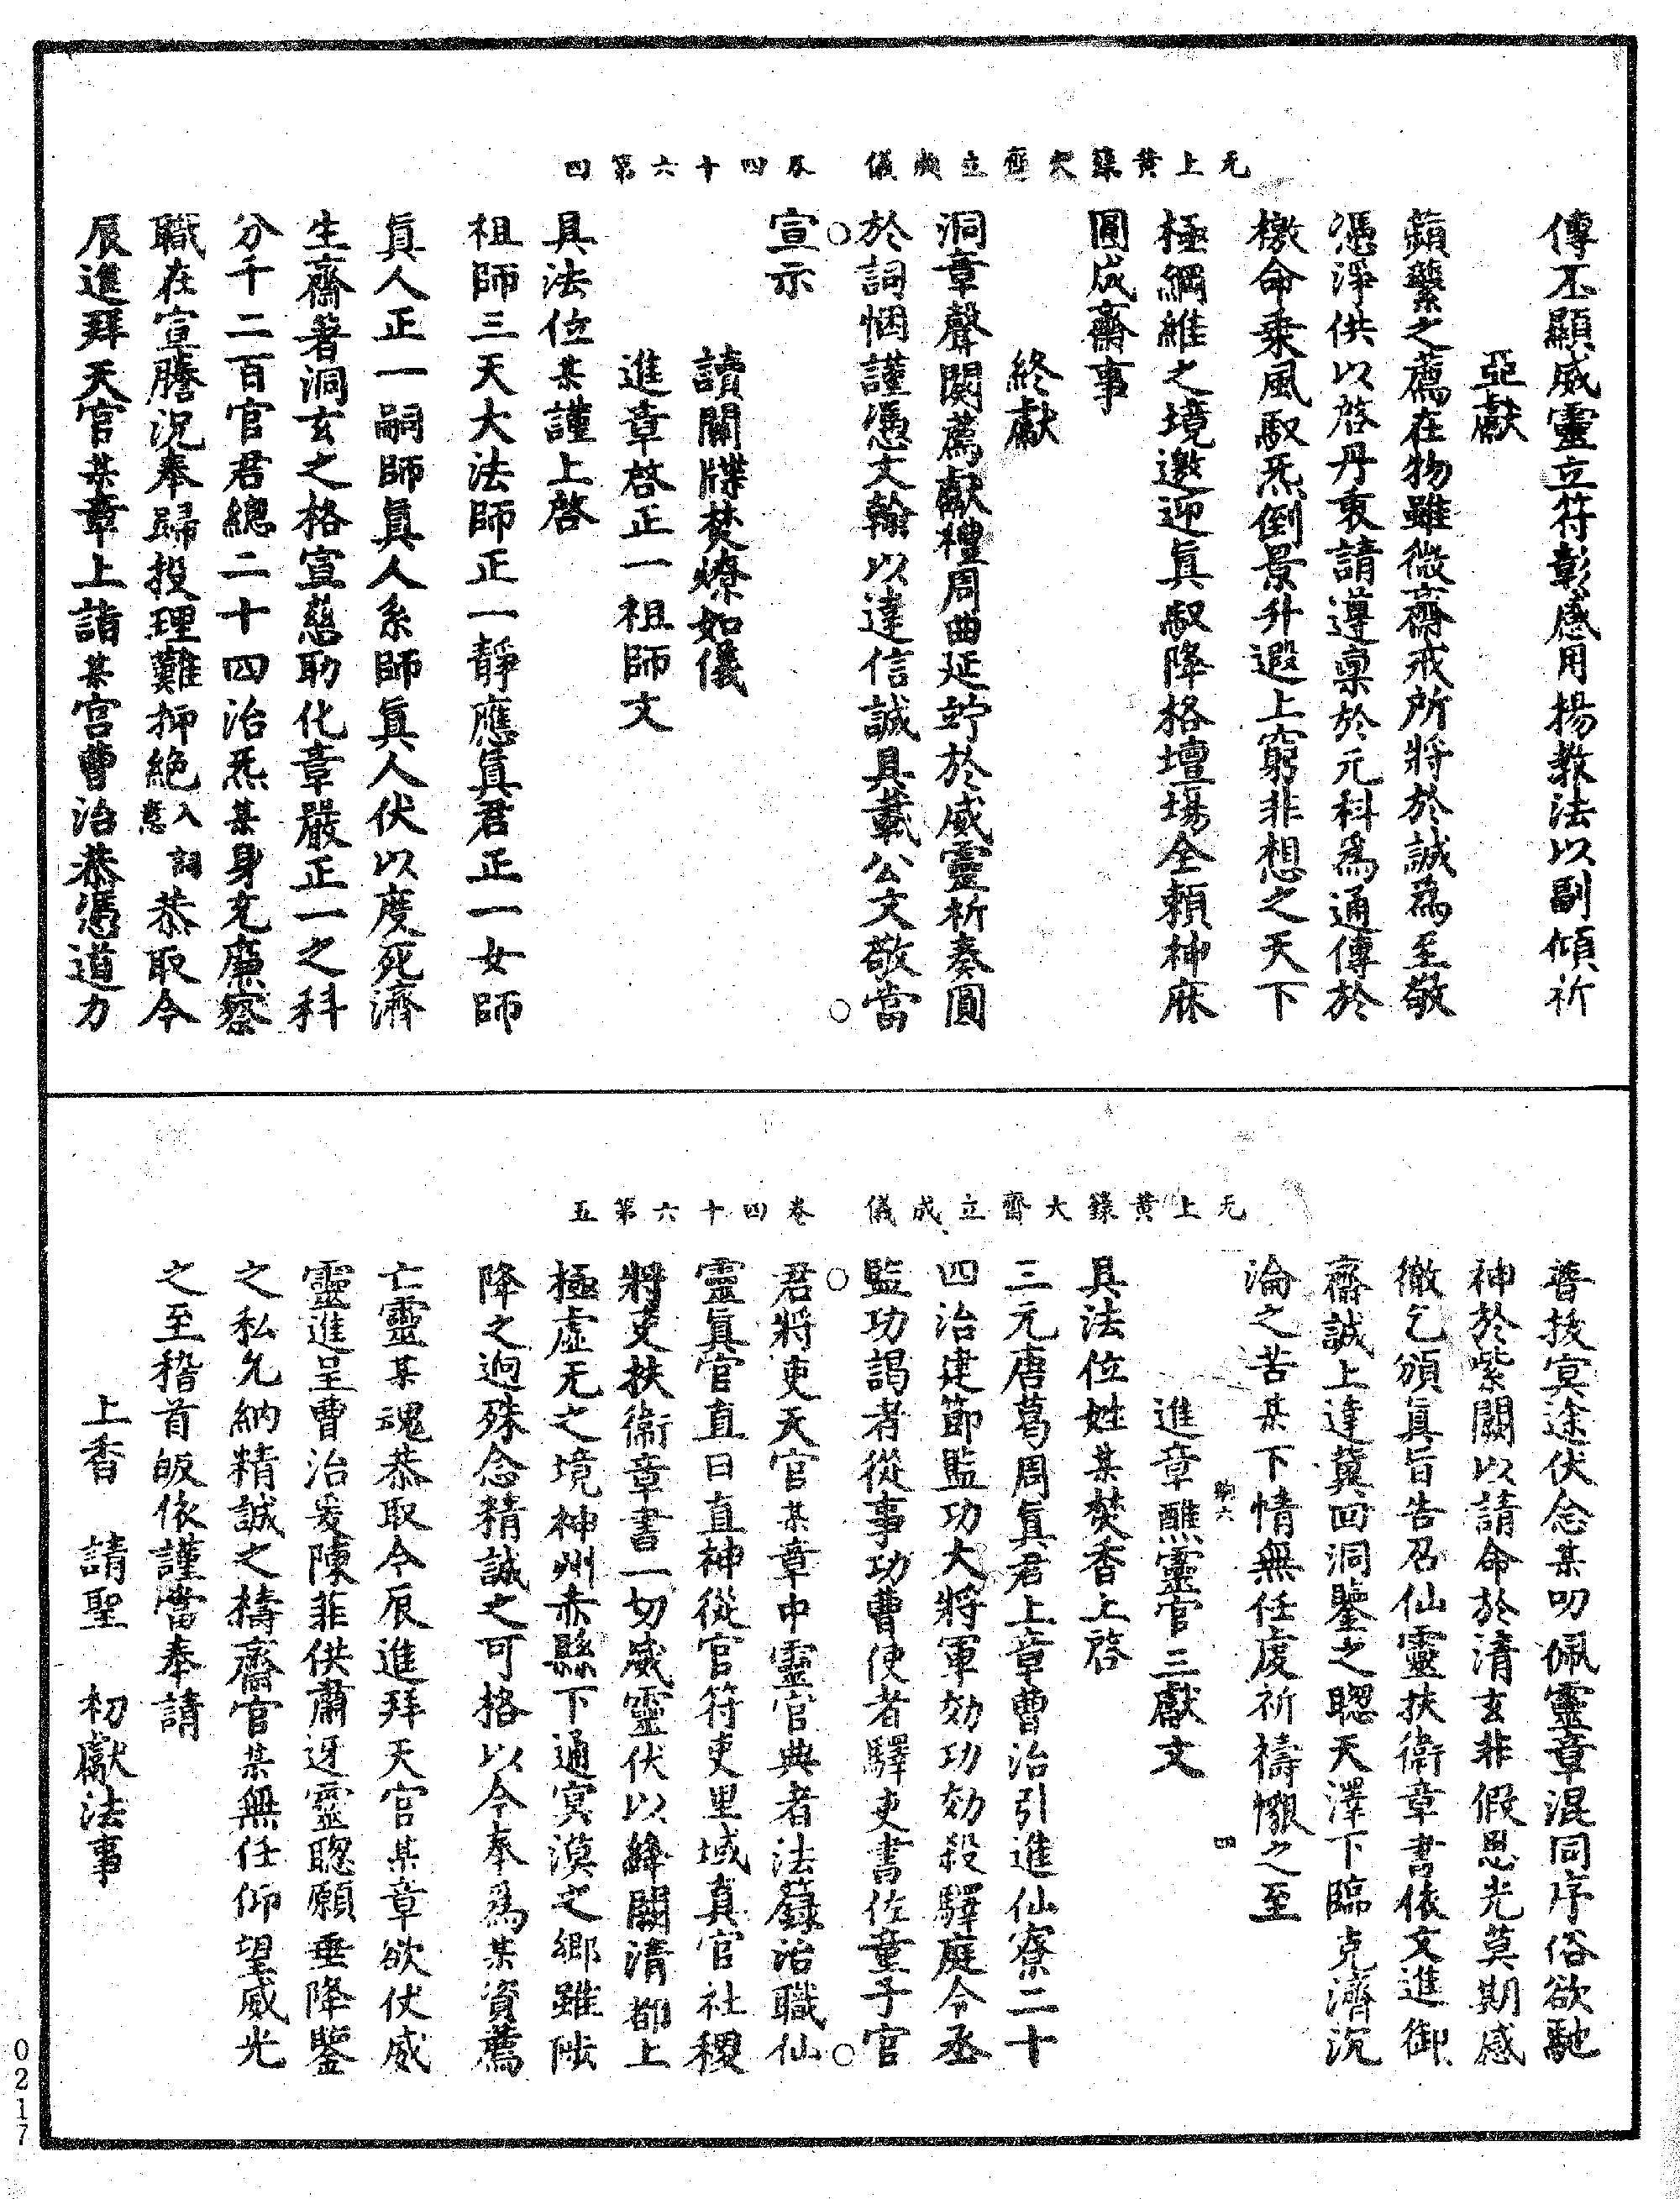 无上黃籙大齋立成儀　卷四十六第四
傳丕顯威靈立符彰感用揚教法以副傾祈
亞獻
蘋蘩之薦在物雖微齋戒所將於誠爲至敬
憑淨供以啓丹衷請遵稟於元科爲通傳於
檄命乗風馭炁倒景升遐上窮非想之天下
極綱維之境邀迎眞馭降格壇場全賴神庥
圓成齋事
終獻
洞章聲闋薦獻禮周曲延竚於威靈祈奏圓
於詞悃謹憑文翰以達信誠具載公文敬當
宣示
讀關牒焚燎如儀
進章啓正一祖師文
具法位某謹上啓
祖師三天大法師正一靜應眞君正一女師
眞人正一嗣師眞人系師眞人伏以度死濟
生齋著洞玄之格宣慈助化章嚴正一之科
分千二百官君總二十四治炁某身充廉察
職在宣謄況奉歸投理難抑絶入詞意恭取今
辰進拜天官某章上詣某宫曹治恭憑道力
无上黃籙大齋立成儀　卷四十六第五
普拔冥途伏念某叨佩靈章混同序俗欲馳
神於紫闕以請命於清玄非假恩光莫期感
徹乞頒眞旨告召仙靈扶衛章書依文進御
齋誠上達冀回洞鑒之聦天澤下臨克濟沉
淪之苦某下情無任虔祈禱懇之至
進章醮靈官三獻文
具法位姓某焚香上啓
三元唐葛周眞君上章曹治引進仙寮二十
四治建節監功大將軍効功効殺驛庭令丞
監功謁者從事功曹使者驛吏書佐童子官
君將吏天官某章中靈官典者法籙治職仙
靈眞官直日直神從官符吏里域真官社稷
將吏扶衞章書一切威靈伏以絳闕清都上
極虛无之境神州赤縣下通冥漠之郷雖陟
降之逈殊念精誠之可格以今奉爲某資薦
亡靈某魂恭取今辰進拜天官某章欲仗威
靈進呈曹治爰陳菲供肅迓靈聦願垂降鑒
之私允納精誠之禱齋官某無任仰望威光
之至稽首皈依謹當奉請
上香　請聖　初獻法事
0217